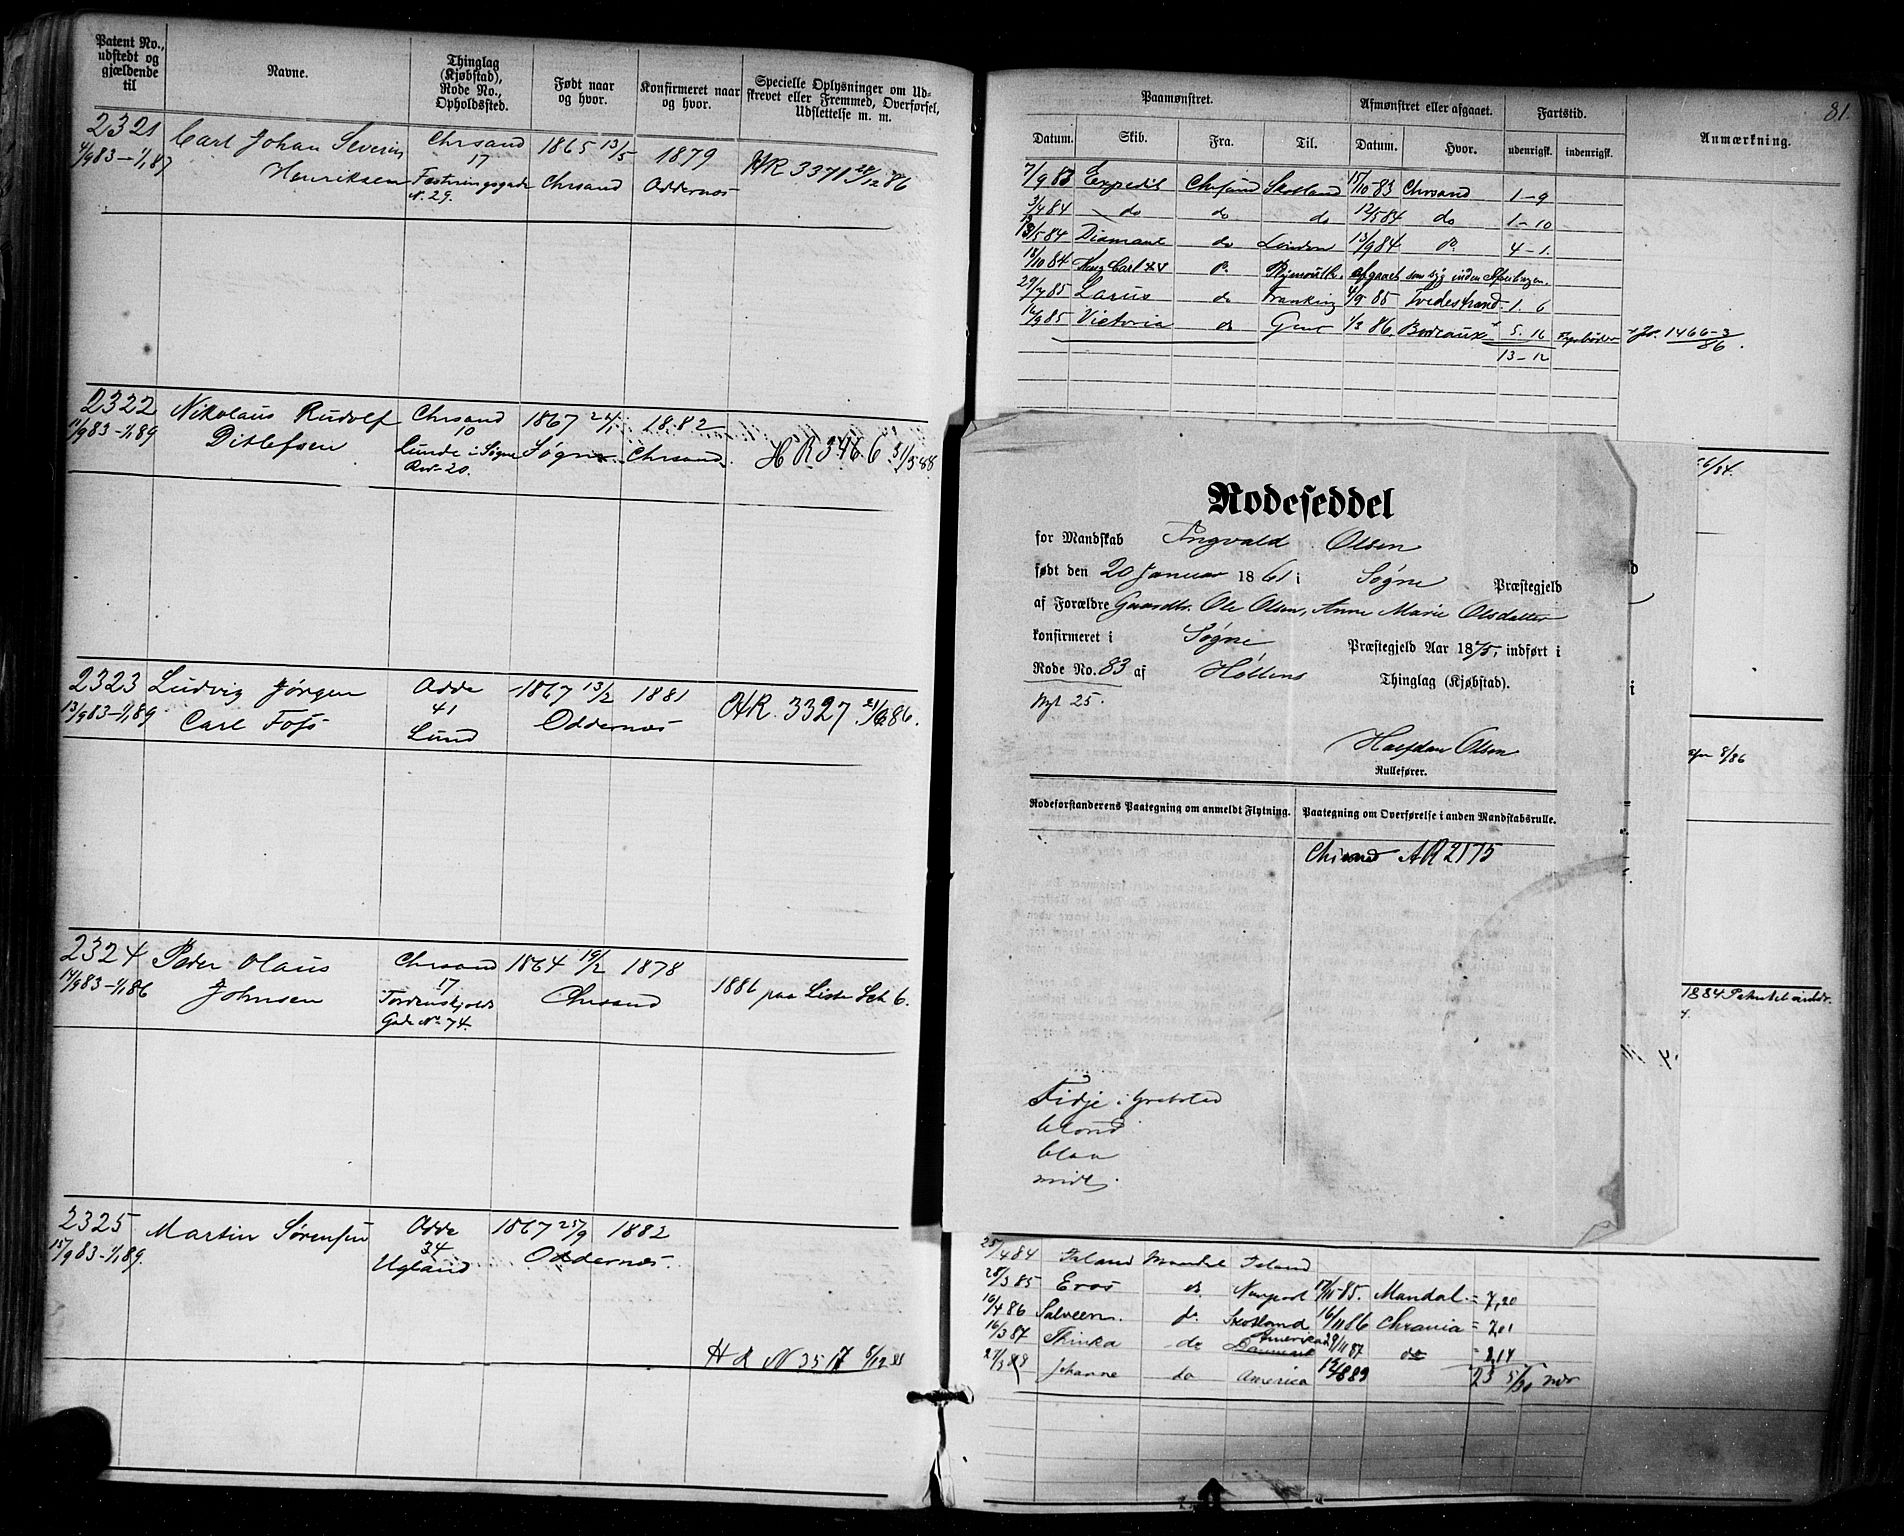 Patent No.,
udstedt og
gjældende
til
Navne.
Thinglag
(Kjøbstad),
Rode No.,
Opholdssted.
Født naar
og hvor.
Konfirmeret naar
og hvor.
Specielle Oplysninger om Ud-
skrevet eller Fremmed, Overførsel,
Udslettelse m. m.
2321
4/9 83 - 1/1 87
Carl Johan Severin
Henriksen
Chrsand
17
Fæstningsgade
N. 29.
1865 13/5
Chrsand
1879
Oddernæs
HR 3371 28/12 86
2322
83 - 1/1 89
Nikolaus Rudolf
Ditlefsen
Chrsand
10
Lunde i Søgne
20.
1867 24/1
Søgne
1882
Chrsand
HR 346 6 31/5 88
2323
13/9 83 - 1/1 89
Ludvig Jørgen
Carl Foss
Odde
41
Lund
1867 13/2 1881
Oddernæs
HR. 3327 86.
2324
14/9 83 - 1/1 86
Peder Olaus
Johnsen
Chrsand
17
Tordenskjolds
Gade No 74.
1864 19/2 1878
Chrsand
1886 paa Liste 6.
2325
15/9 83 - 1/1 89.
Martin Sørensen
Odde
34
Ugland
1867 25/9 1882
Oddernæs.
HR N 3517 8/12 88
81.
Paamønstret.
Afmønstret eller afgaaet.
Fartstid.
Anmærkning.
Datum. Skib. Fra. Til. Datum. Hvor. udenrigsk. indenrigsk.
7/9 83 Expedit Chrsand Skotland 15/10 83 Chrsand 1-9
3/4 84 do do do 12/5 84 do 1-10
13/5 84 Diamant do London 13/9 84 do 4-1.
18/10 84 Kong Carl XV do Plymouth. afgaaet som syg inden
29/7 85 Larus do 85 Tvedestrand 1. 6
16/9 85 Victoria do Gent 1/3 86 Bordeaux 5. 16 Jo. 1466-3/86.
13-12
6/84.
8/86
1884
Rodeseddel
for Mandskab Ingvald Olsen
født den 20 Januar 1861 i Søgne Præstegjeld
af Forældre Gaardbr. Ole Olsen, Anne Marie Olsdatter
konfirmeret i Søgne Præstegjeld Aar 1875, indført i
Rode No. 83 af Høllens Thinglag (Kjøbstad).
Nyt 25.
Halfdan Olsen
Rullefører.
Rodeforstanderens Paategning om anmeldt Flytning.
Paategning om Overførelse i anden Mandskabsrulle.
Chrsand AR 2175
Tidje i Grebsted
blond
blaa
midl.
25/4 84 Island Mandal Island
28/3 85 Eros do Newport 85. Mandal = 7,20
16/4 86 do Skotland 16/11 86 Chrania = 7,01
16/3 87 Thinka do Danmark Amerika 29/11 87 do
27/3 88 Johanne do America 89 23